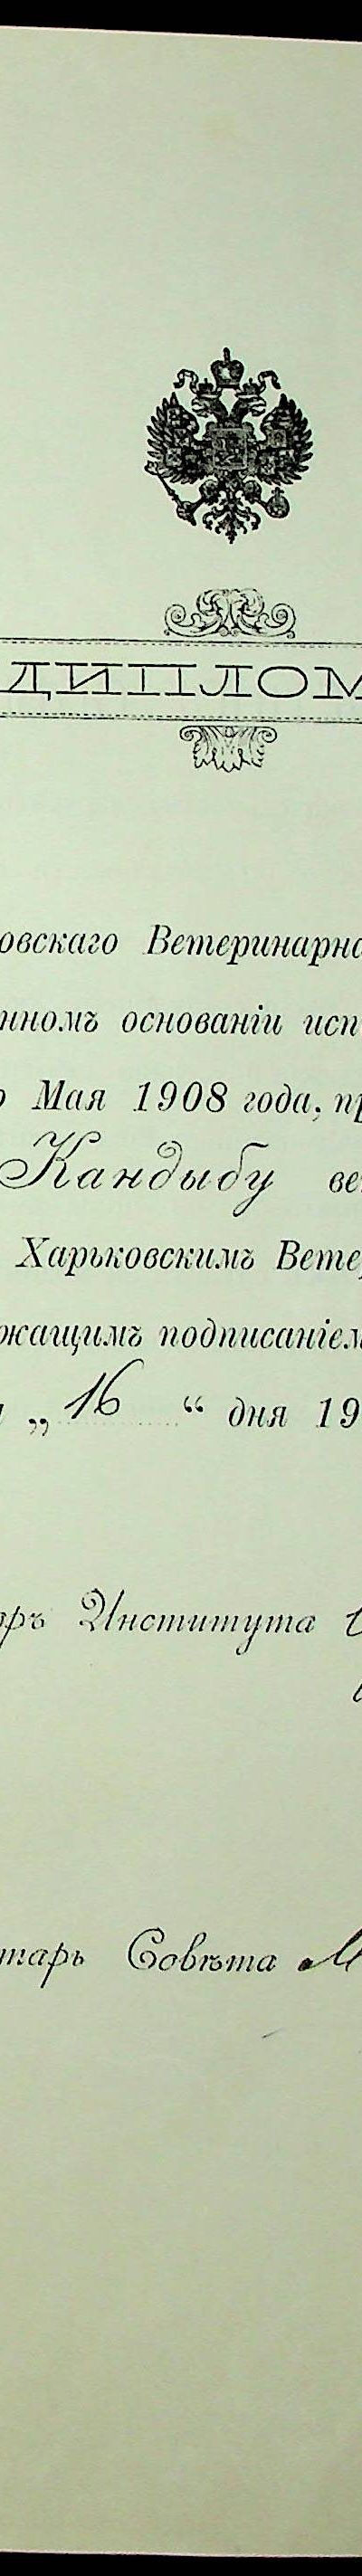 ДИПЛОМ
овскаго Ветеринарна
нномъ основаніи исп
Мая 1908 года, пр
Кандыбу ве
Харьковскимъ Вете
жащимъ подписаніем
„ 16 “ дня 19
оръ Института
тарь Совѣта М